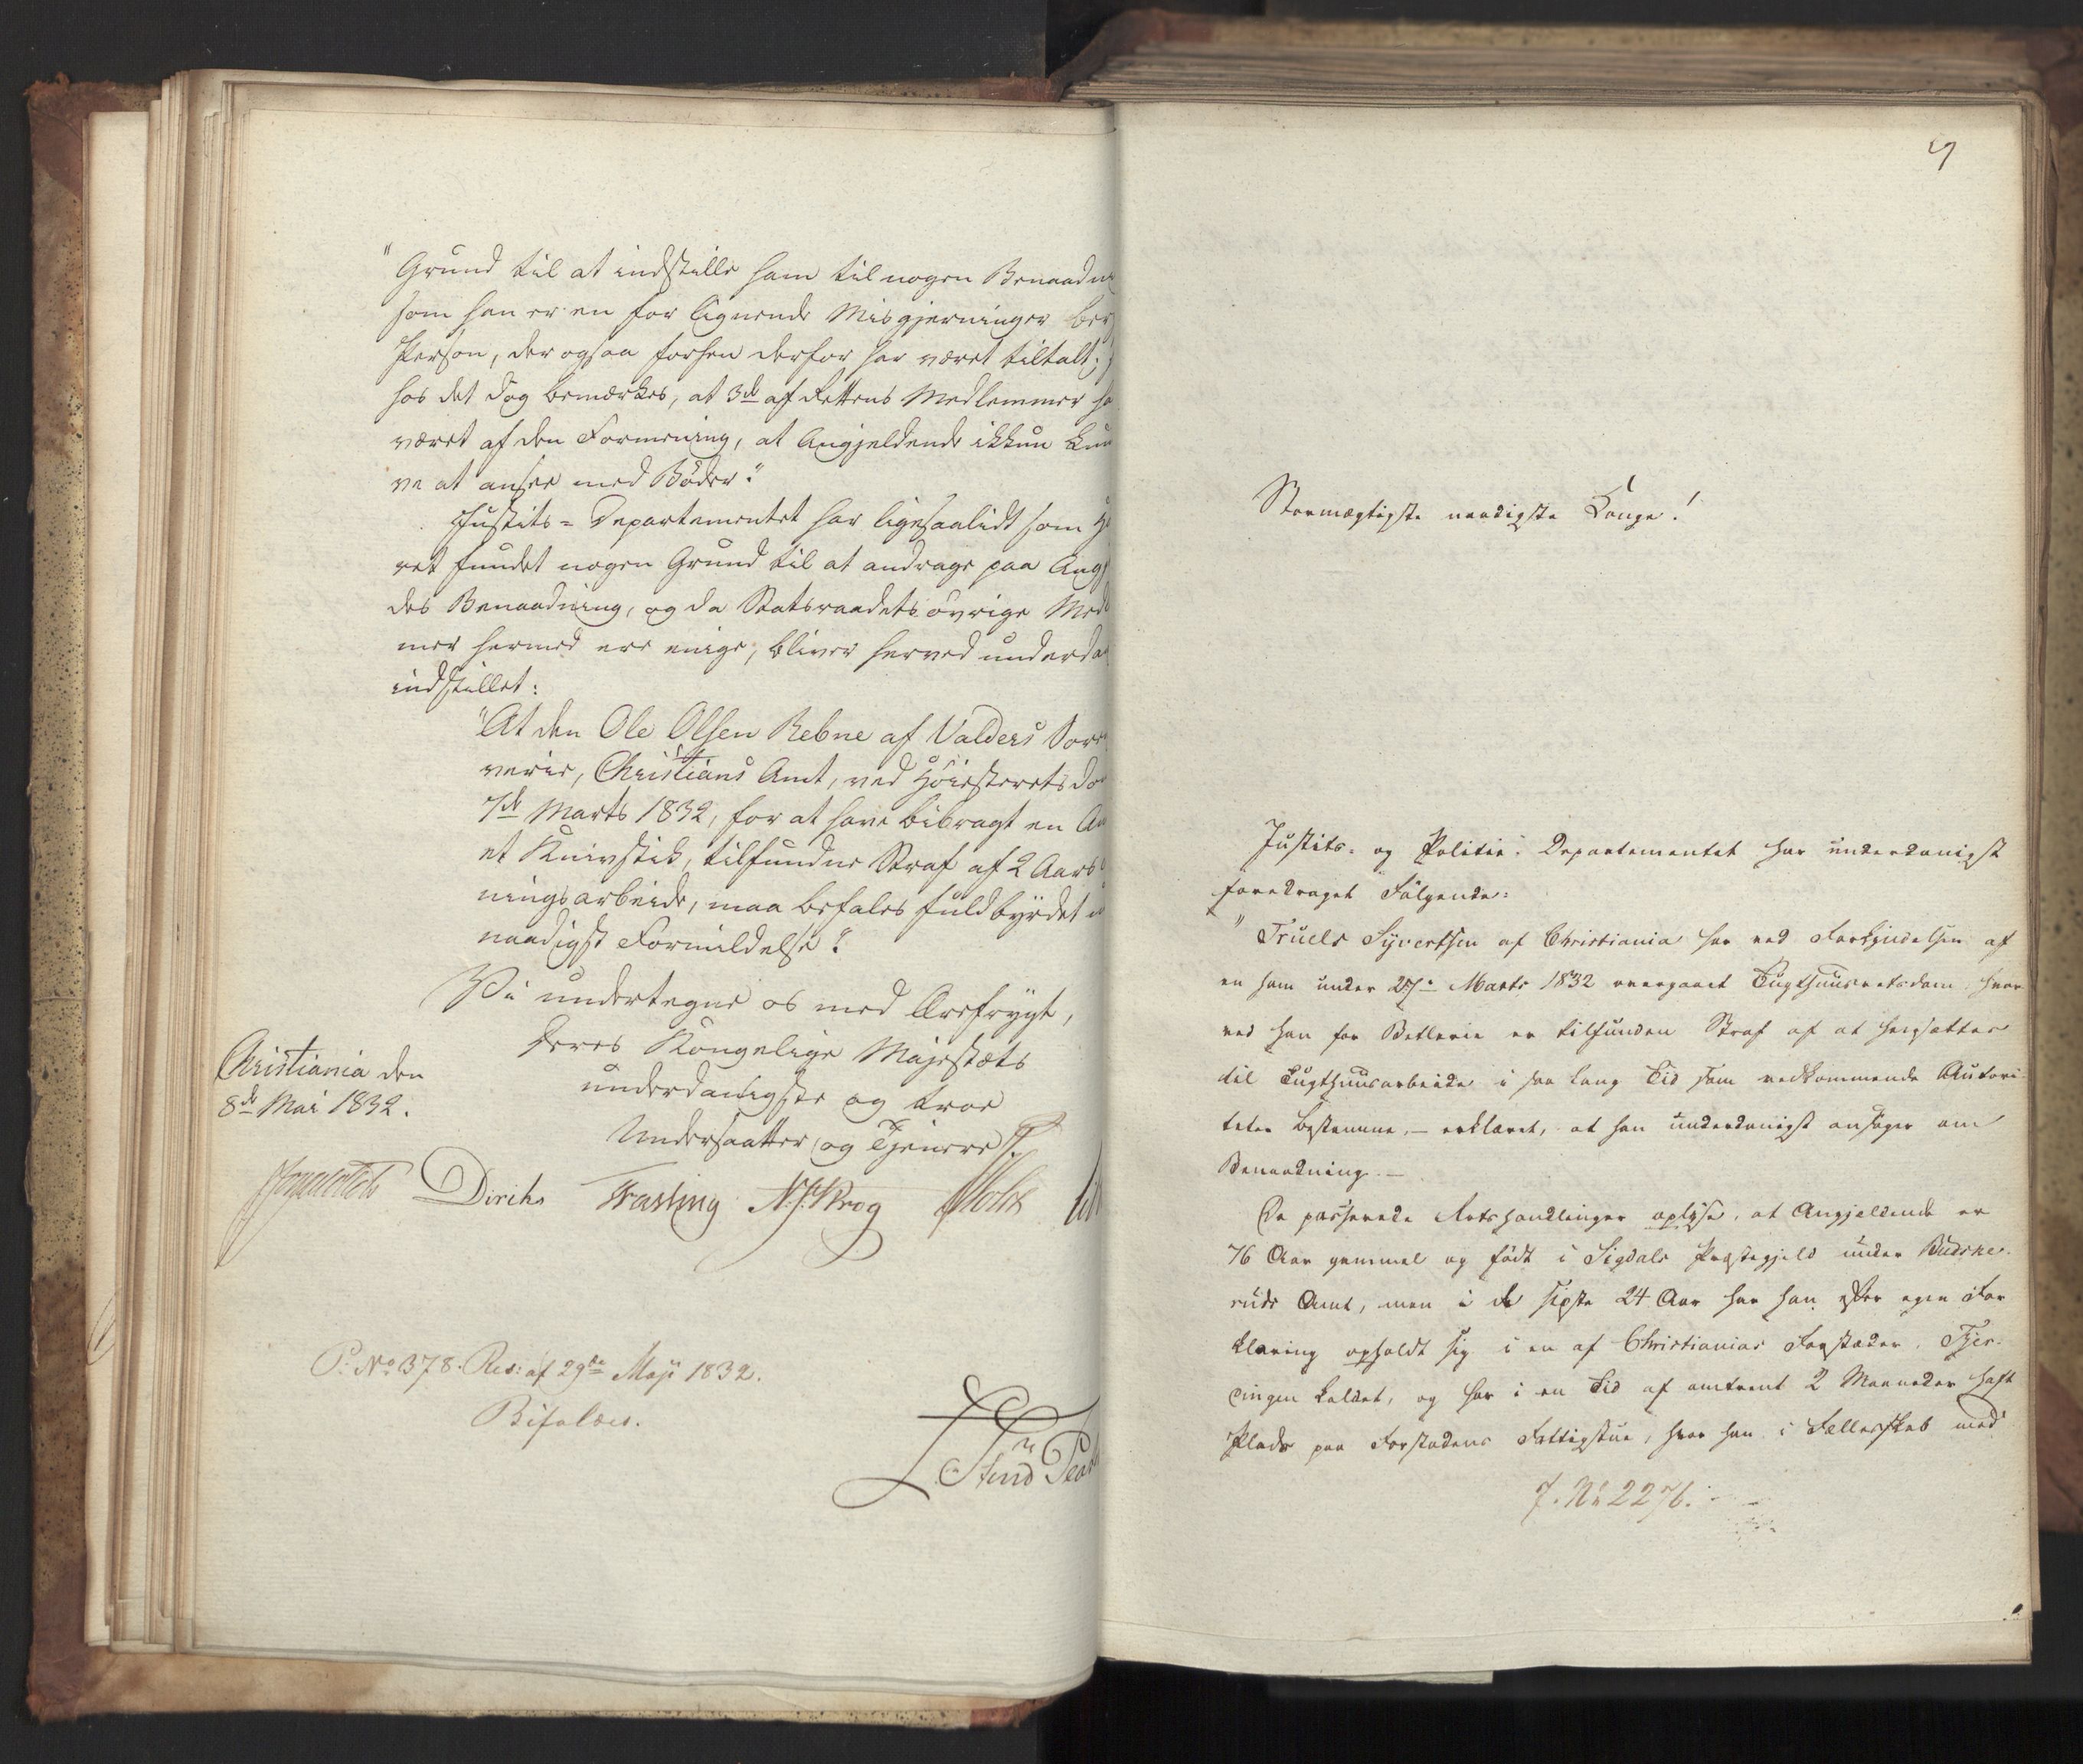 "Grund til at indstille ham til nogen Benaadn
som han er en for lignende Misgjerninger ber
Person, der ogsaa forhen derfor har været tiltalt;
hos det dog bemærkes, at 3de af Rettens Medlemmer ha
været af den Formening, at Angjeldende ikkun bur
ve at ansee med Bøder."
Justits-Departementet har ligesaalidt som H
ret fundet nogen Grund til at andrage paa Angj
des Benaadning, og da Statsraadets øvrige Med
mer hermed ere enige, bliver herved underda
indstillet:
"At den Ole Olsen Rebne af Valders Sore
verie, Christians Amt, ved Høiesterets Do
7de Marts 1832, for at have bibragt en An
et Knivstik, tilfundne Straf af 2 Aars
ningsarbeide, maa befales fuldbyrdet u
naadigst Formildelse."
Vi undertegne os med Ærefrygt,
Deres Kongelige Majestæts
underdanigste og troe
Undersaatter og Tjenere
Christiania den
8de Mai 1832.
Diriks Fasting N. J. Krog Holst
P: No 378. Res: af 29de Maji 1832.
Bifaldes.
Stormægtigste naadigste Konge!
Justits- og Politie-Departementet har underdanigst
foredraget Følgende:
"Truels Syvertsen af Christiania har ved Forkyndelsen af
en ham under 27de Marts 1832 overgaaet Tugthuusretsdom hvor
ved han for Betlerie er tilfunden Straf af at hensættes
til Tugthuusarbeide i saa lang Tid som vedkommende Autori-
teter bestemme, – erklæret, at han underdanigst ansøger om
Benaadning. –
De passerede Retshandlinger oplyse, at Angjeldende er
76 Aar gammel og født i Sigdals Præstegjeld under Budske-
ruds Amt, men i de sidste 24 Aar har han efter egen For
klaring opholdt sig i en af Christianias Forstæder, Fjer-
dingen kaldet, og har i en Tid af omtrent 2 Maaneder havt
Plads paa Forstadens Fattigstue, hvor han i Fællesskab med
7. No 2276.